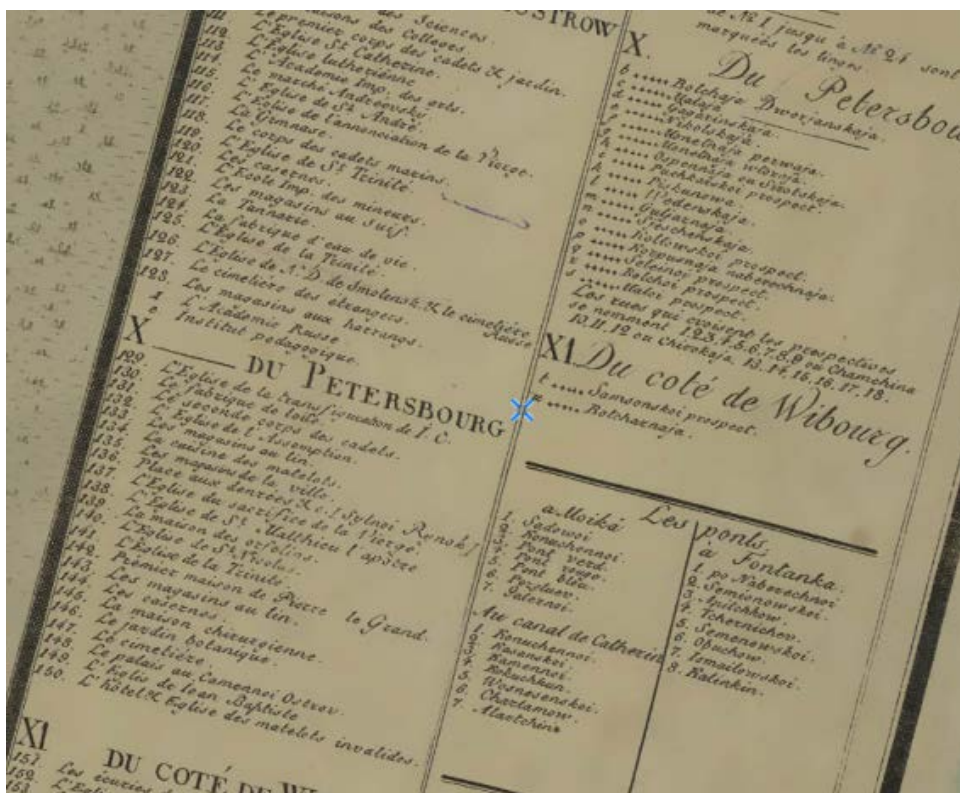 OSTROW
des Sciences.
des Colleges.
112. Le premier corps des cadets & jardin.
113. L'Eglise St Catherine.
114. L'Eglise lutherienne
115. L'Academie Imp. des arts.
116. Le marché Andreevsky.
117. L'Eglise de St André.
118. L'Eglise de l'annonciation de la Vierge.
La Gimnase.
119. Le corps des cadets marins.
120. L'Eglise de St Trinité.
121. Les casernes.
122. L'Ecole Imp. des mineurs.
123. Les magasins au suif.
124. La Tannarie.
125. La fabrique d'eau de vie.
126. L'Eglise de la Trinité.
127. L'Eglise de N. D. de Smolensk & le cimetière Russe
128. Le cimetière des etrangers.
Les magasins aux harrangs.
L'Academie Russe
e Institut pedagogique.
X DU PETERSBOURG
129. L'Eglise de la transfiguration de I. C.
130. La fabrique de toile.
131. Le seconde corps des cadets.
132. L'Eglise de l'Assomption.
133. Les magasins au lin.
134. La cuisine des matelots.
135. Les magasins de la ville.
136. Place aux denrées &c. | Sytnoi Rynok |
137. L'Eglise du sacrifice de la Vierge.
138. L'Eglise de St Matthieu l'apôtre
139. La maison des orfelins.
140. L'Eglise de St Nicolas.
141. L'Eglise de la Trinité.
142. Prémier maison de Pierre le Grand.
143. Les magasins au lin.
144. Les casernes.
145. La maison chirurgienne.
146. Le jardin botanique.
147. Le cimetière.
148. Le palais au Camennoi Ostrov.
149. L'Eglis de Ioan Baptiste
150. L'hôtel & Eglise des matelots invalides.
XI DU COTÉ DE WI
151. Les écuries
152. L'Eglise
153.
de № 1 jusqu'à № 24 sont
marquées les linges.
X. Du Petersbou
b Bolchaja Dworjanskaja.
c Malaja
d Gagarinskaja.
e Nikolskaja.
f Usnelnaja perwaja.
g Usnelnaja wtoraja.
h Ospennaja ou Sinotskaja.
i Puchkarskoi prospect.
k Piskunowa.
l Wedenskaja.
m Guljarnaja.
n Teschenskaja.
o Koltowskoi prospect.
p Korpusnaja naberechnaja.
q Seleinoi prospect.
r Bolchoi prospect.
s Maloi prospect.
Les rues qui croisent les prospectives
se nomment 1.2.3.4.5.6.7.8.9 ou Chamchina
10.11.12 ou Chirokaja, 13.14.15.16.17.18.
XI. Du coté de Wibourg.
t Samsonskoi prospect.
Botcharnaja.
Les ponts,
a Moiká.
1. Sadowoi.
2. Konuchennoi.
3. Pont verd.
4. Pont rouge.
5. Pont bleu.
6. Pozeluev.
7. Galernoi.
Au canal de Catherin
1. Konuchennoi.
2. Kasanskoi.
3. Kamennoi.
4. Kokuchkin.
5. Wosnesenskoi.
6. Charlamow.
7. Alartchine
à Fontanka.
1. po Naberechnoi
2. Semionowskoi.
3. Anitchkow.
4. Tchernichev.
5. Semenewskoi.
6. Obuchow.
7. Ismailowskoi.
8. Kalinkin.